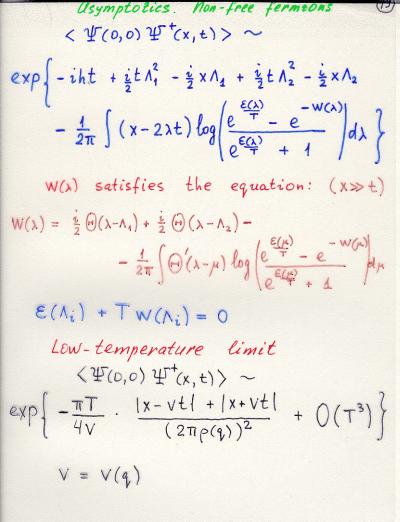 Asymptotics. Non-free fermions
< Ψ(0,0) Ψ⁺(x,t) > ~
exp{ - iht + i/2 tΛ₁² - i/2 xΛ₁ + i/2 tΛ₂² - i/2 xΛ₂
- 1/2π ∫ (x-2λt) log( (e^{ε(λ)/T} - e^{-W(λ)}) / (e^{ε(λ)/T} + 1) ) dλ }
W(λ) satisfies the equation: (x≫t)
W(λ) = i/2 Θ(λ-Λ₁) + i/2 Θ(λ-Λ₂) -
- 1/2π ∫ Θ'(λ-μ) log( (e^{ε(μ)/T} - e^{-W(μ)}) / (e^{ε(μ)/T} + 1) ) dμ
ε(Λᵢ) + T W(Λᵢ) = 0
Low-temperature limit
< Ψ(0,0) Ψ⁺(x,t) > ~
exp{ - πT/4v · (|x-vt| + |x+vt|) / (2πρ(q))² + O(T³) }
v = v(q)